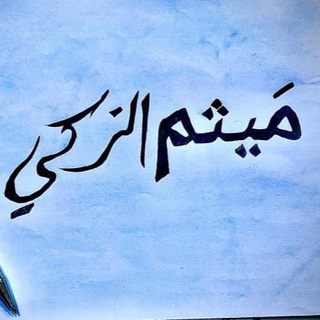 مَيثم الزكي